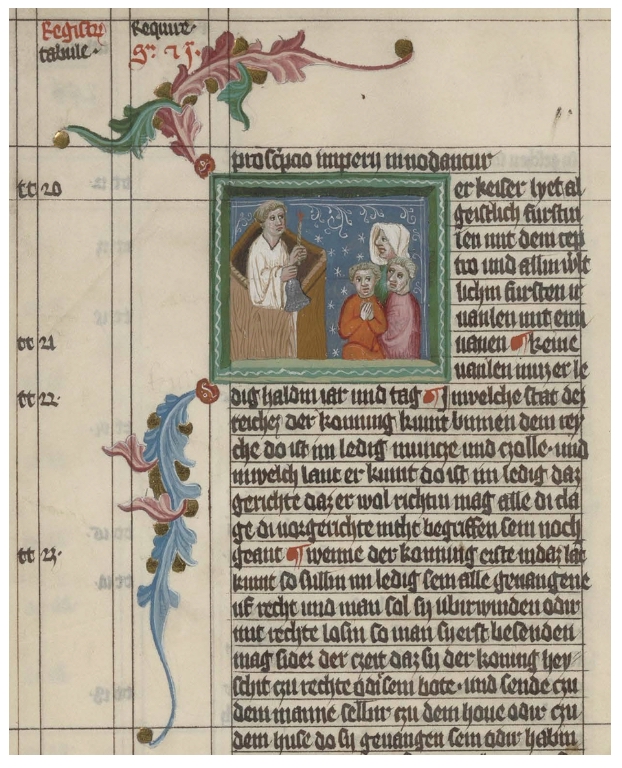 Registrū
tabule·
Require·
proscpcio imperij innodantur
er keiser lyet al
geistlich furstin
len mit dem cep
tro und allin
lichin fursten
uanlen mit eim
uanen ¶ keine
uanlen muz er le
dig haldin iar und tag ¶ Inwelche stat des
reiches der konning kumt binnen dem rey
che do ist im ledig muncze und czolle· und
inwelch lant er kumt do ist im ledig daz
gerichte daz er wol richtin mag alle di cla
ge di vorgerichte nicht begriffen sein noch
geant ¶ wenne der konning erste indaz lāt
kumt so sullin im ledig sein alle geuangene
uf recht und man sol sy ubirwinden odir
mit rechte losin so man sy erst besenden
mag sider der czeit daz sy der koning hey
schit czu rechte bote· und sende czu
dem manne selbir czu dem houe odir czu
dem huse do sy geuangen sein odir habin
tt 20
tt 21
tt 22·
tt 23·